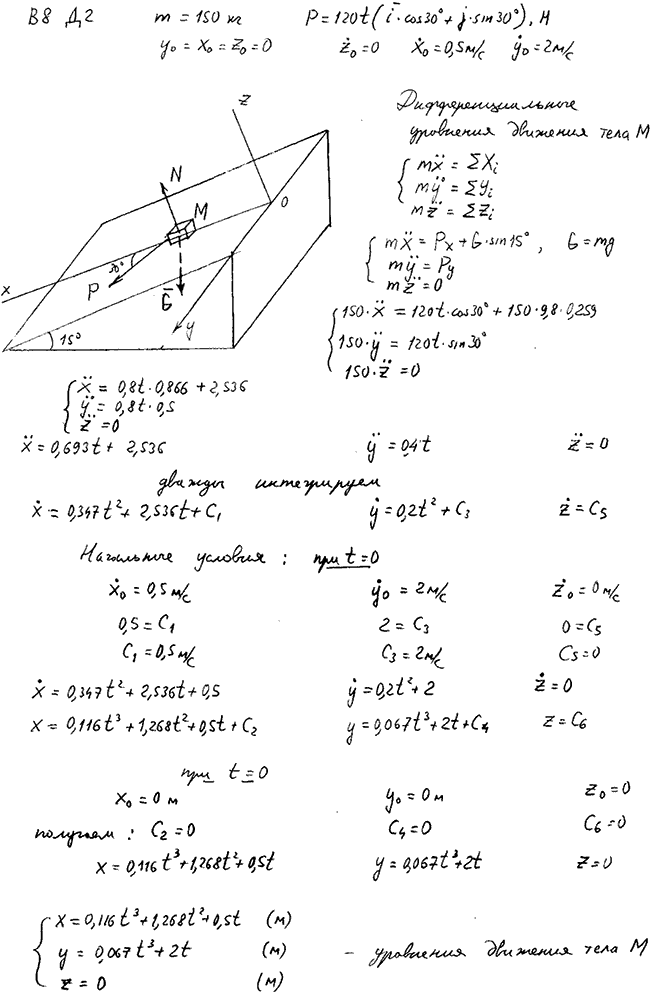 В8 Д2 m = 150 кг P = 120t(i̅·cos30° + j̅·sin30°), Н
y₀ = x₀ = z₀ = 0 ż₀ = 0 ẋ₀ = 0,5м/с ẏ₀ = 2м/с
Дифференциальные
уровнения движения тела М
mẍ = ΣXᵢ
mÿ = Σyᵢ
mz̈ = Σzᵢ
z
N
M
O
30°
P
G̅
x
y
15°
mẍ = Pₓ + G·sin15° , G = mg
mÿ = Py
mz̈ = 0
150·ẍ = 120t·cos30° + 150·9,8·0,259
150·ÿ = 120t·sin30°
150·z̈ = 0
ẍ = 0,8t·0,866 + 2,536
ÿ = 0,8t·0,5
z̈ = 0
ẍ = 0,693t + 2,536 ÿ = 0,4t z̈ = 0
дважды интегрируем
ẋ = 0,347t² + 2,536t + C₁ ẏ = 0,2t² + C₃ ż = C₅
Начальные условия : при t = 0
ẋ₀ = 0,5м/с ẏ₀ = 2м/с ż₀ = 0м/с
0,5 = C₁ 2 = C₃ 0 = C₅
C₁ = 0,5м/с C₃ = 2м/с C₅ = 0
ẋ = 0,347t² + 2,536t + 0,5 ẏ = 0,2t² + 2 ż = 0
x = 0,116t³ + 1,268t² + 0,5t + C₂ y = 0,067t³ + 2t + C₄ z = C₆
при t = 0
x₀ = 0 м y₀ = 0 м z₀ = 0
получаем : C₂ = 0 C₄ = 0 C₆ = 0
x = 0,116t³ + 1,268t² + 0,5t y = 0,067t³ + 2t z = 0
x = 0,116t³ + 1,268t² + 0,5t (м)
y = 0,067t³ + 2t (м) – уровнения движения тела М
z = 0 (м)